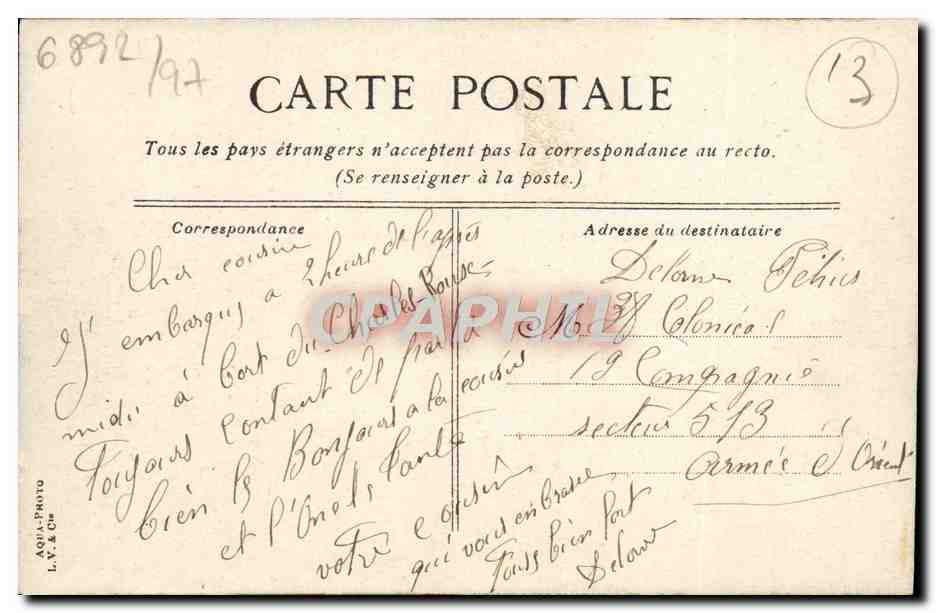 6892/97
13
CARTE POSTALE
Tous les pays étrangers n'acceptent pas la correspondance au recto.
(Se renseigner à la poste.)
Correspondance
Cher cousin
J' embarqus a 2 heure de l'après
midi à bort du Charles-Rouse
Toujours contant de partir
bien le Bonjours a la cousine
et l'Oncle tante
votre cousin
qui vous embrasse
Tous bien fort
Delorme
Adresse du destinataire
Delorme Félius
38 Colonieal
19 Compagnie
secteur 513
armée d'Orient
CPAPHIL
AQUA-PHOTO
L. V. & Cie